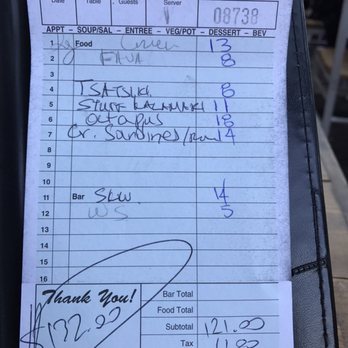 Date Table Guests Server
1 08738
APPT - SOUP/SAL - ENTREE - VEG/POT - DESSERT - BEV
1 Food Green 13
2 FAVA 8
3
4 TSATSIKI 8
5 STUFF KALAMARI 11
6 octopus 18
7 Gr. Sardines/ 14
8
9
10
11 Bar SLW. 14
12 WS 5
13
14
15
16
Thank You! Bar Total
Food Total
$132.00 Subtotal 121.00
Tax 11.00